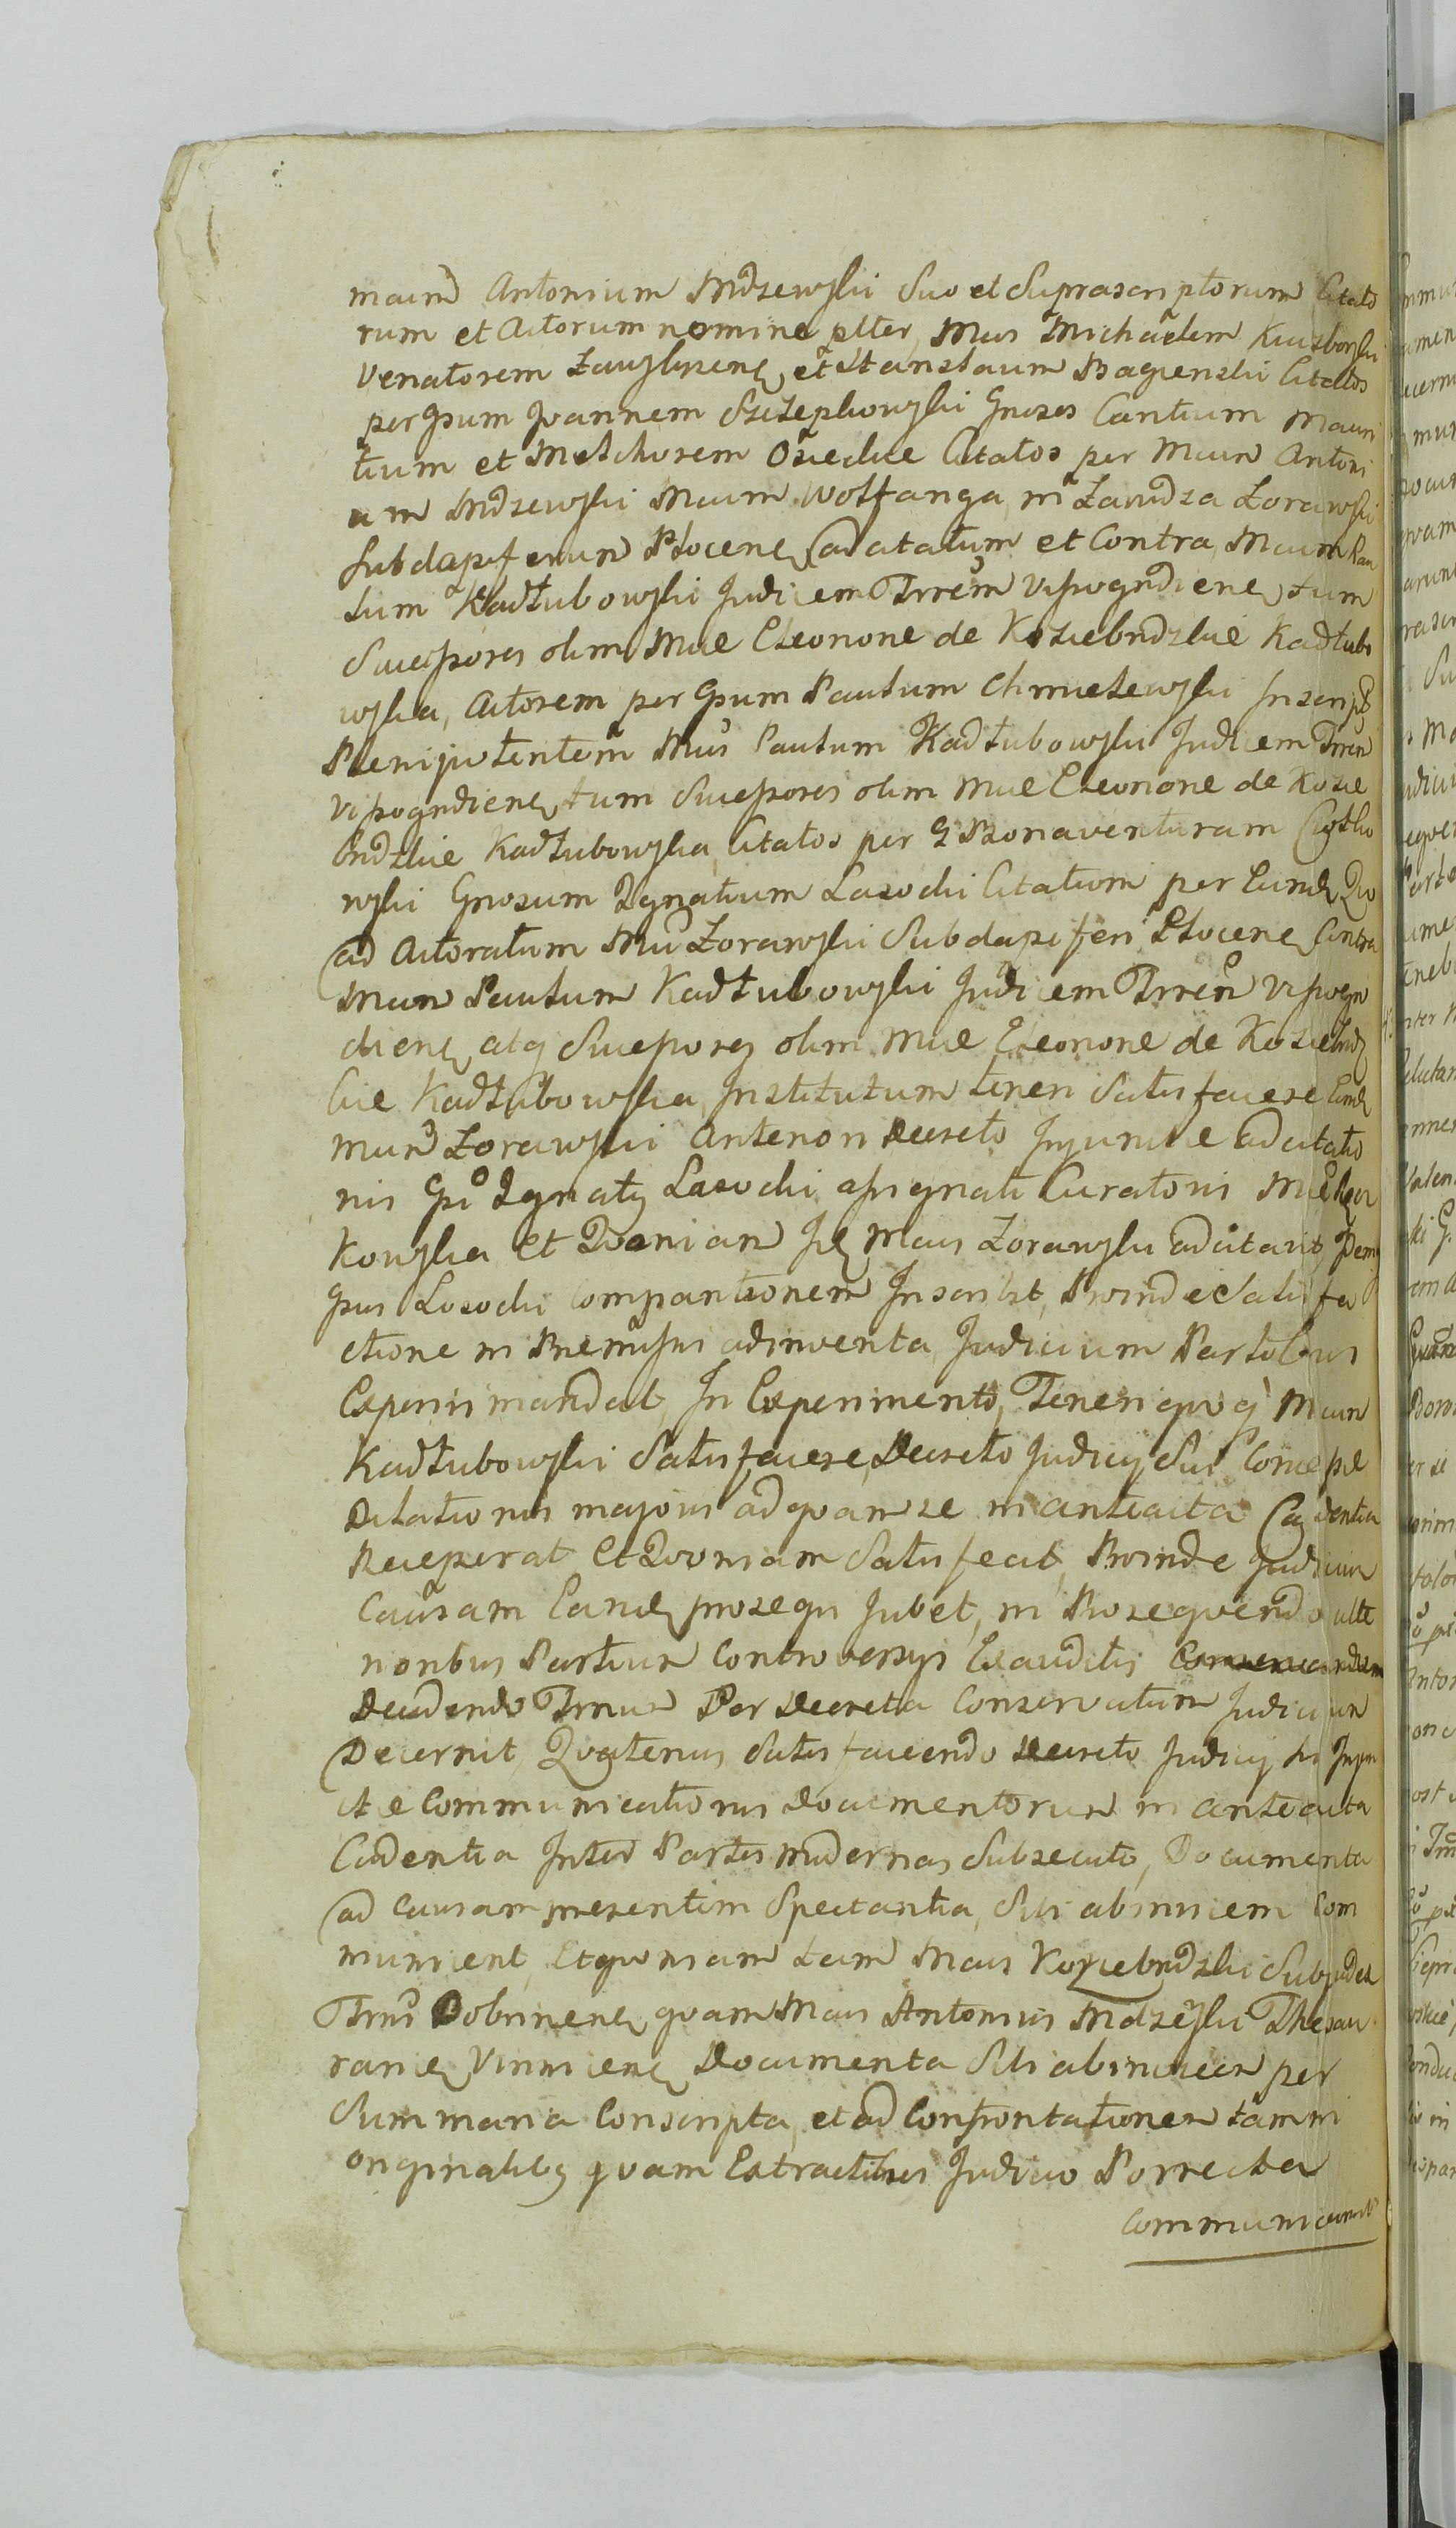 mum Antonium Mdzewski Suo et Suprascriptorum Citato
rum et Actorum nomine plter, Mus Michaelem
Venatorem Zawskrzene et Stanislaum Bagienski Citatos
per Gsum Joannem Szczepkowski Gnosos Cantium Mauri
tium et Melchiorem Citatos per Mum Antoni
um Mdzewski Mum Wolfanga in Zawidza Zorawski
Subdapiferum Plocene adcitatum et Contra Mum Pau
lum Kadłubowski Judicem Trrem Vissogrdiene, tum
Succssores olim Mae Eleonorae de Koziebrdzkie Kadłubo
wska, Actorem per Gsum Paulum Chmielewski Inscrip
Plenipotentem Mus Paulum Kadłubowski Judicem Trren
Vissogrdiene, tum Successores olim Mae Eleonorae de Kozie
brdzkie Kadłubowska, Citatos per G Bonaventuram
wski Gnosum Ignatium Lasocki Citatum per Eund Quo
ad Actoratum Mi Zorawski Subdapiferi Plocene Contra
Mum Paulum Kadłubowski Judicem Trren Vissogr
diene, atq Successores olim Mae Eleonorae de Koziebrdz
kie Kadłubowska, Institutum teneri Satisfacere Eund
Mum Zorawski Anteriori Decreto Injunctae adcitatio
nis Gsi Ignaty Lasocki assignati Curatoris Mae
kowska Et Quoniam Is Mus Zorawski adcitavit, Idem
Gsus Lasocki Comparitionem Inscribit, Proinde Satisfa
ctione in Praemissis adinventa, Judicium Partibus
Experiri mandat, In Experimento, Teneri quoq Mum
Kadłubowski Satisfacere Decreto Judicy Sui Concessae
Dilationis majoris ad quam se in anteacta Cadentia
Receperat Et Quoniam Satisfecit, Proinde Judicium
Causam Eand prosequi Jubet, in Prosequendo ulte
rioribus Partium Controversys Exauditis
Decidendo Trnum Per Decreta Conservatum Judicium
Decernit Quatenus Satisfaciendo Decreto Judicy hi Injun
ctae Communicationis Documentorum in anteacta
Cadentia Inter Partes modernas Subsecuto, Documenta
ad Causam presentem Spectantia, Sibi abinvicem Com
municent, Et quoniam tam Mus Koziebrdzki Subjudex
Trris Dobrinene, quam Mus Antonius Mdzewski Thesau
rarie Vinnicene Documenta Sibi abinvicem per
Summaria Conscripta, et ad Confrontationem tam in
originalibq quam Extractibus Judicio Porrecta
Communicarunt